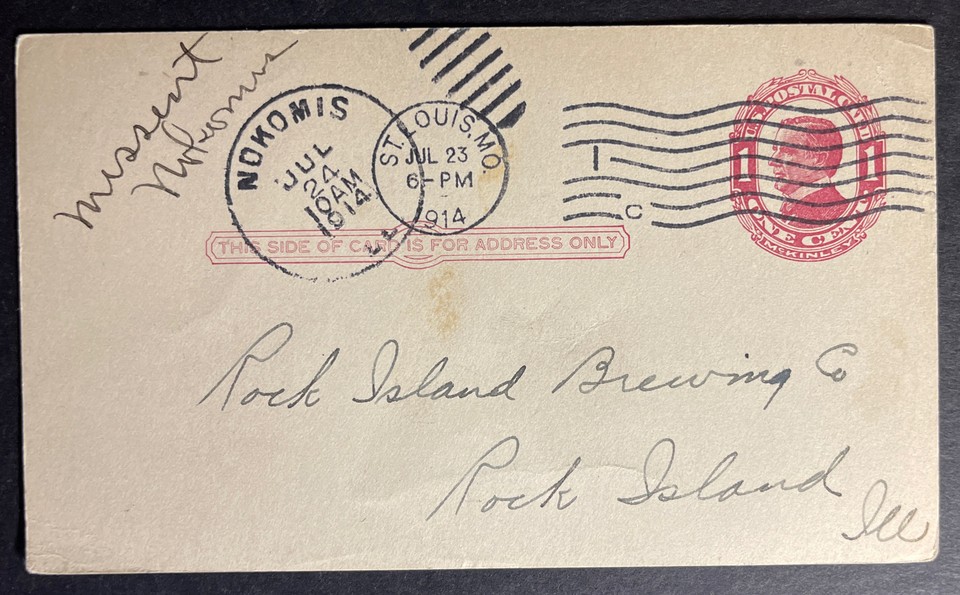 Missent
Nokomis
NOKOMIS
JUL
24
10AM
1914
ILL.
ST. LOUIS, MO.
JUL 23
6-PM
1914
1
C
U.S. POSTAL CARD
1 1
ONE CENT
McKINLEY
THIS SIDE OF CARD IS FOR ADDRESS ONLY
Rock Island Brewing Co
Rock Island
Ill